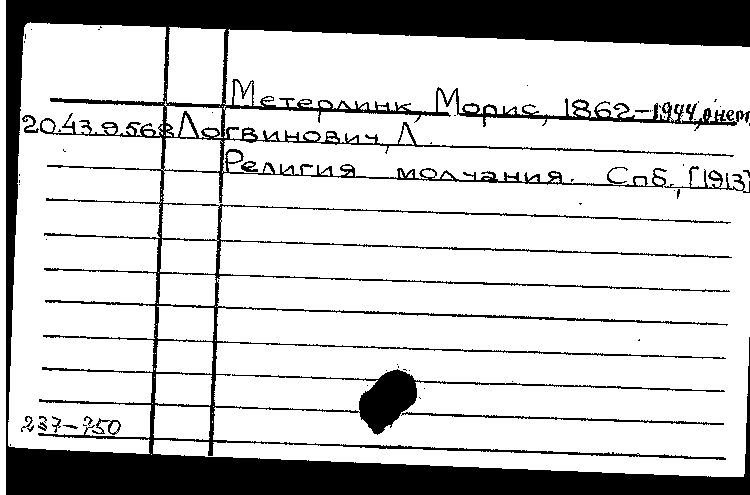 Метерлинк, Морис, 1862-1944, о нем
20.43.9.568 Логвинович, Л.
Религия молчания. Спб., [1913]
237-750